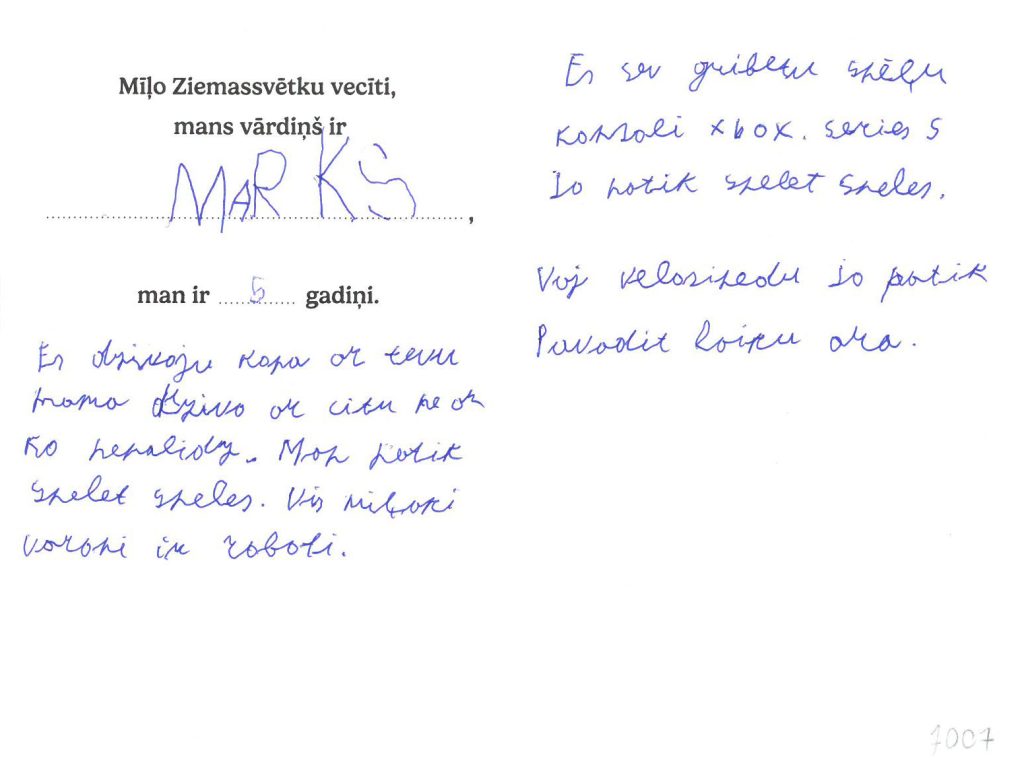 Mīļo Ziemassvētku vecīti,
mans vārdiņš ir
MARKS,
man ir 5 gadiņi.
Es dzivoju kopa ar tevu
mama dzivo ar citu ne ar
ko nepalidz. Man patik
spelet speles. Vis miļaki
varoni ir roboti.
Es sev gribetu spēļu
konsoli xbox. series S
Jo patik spelet speles.
Vaj velosipedu Jo patik
Pavadit laiku ara.
7007